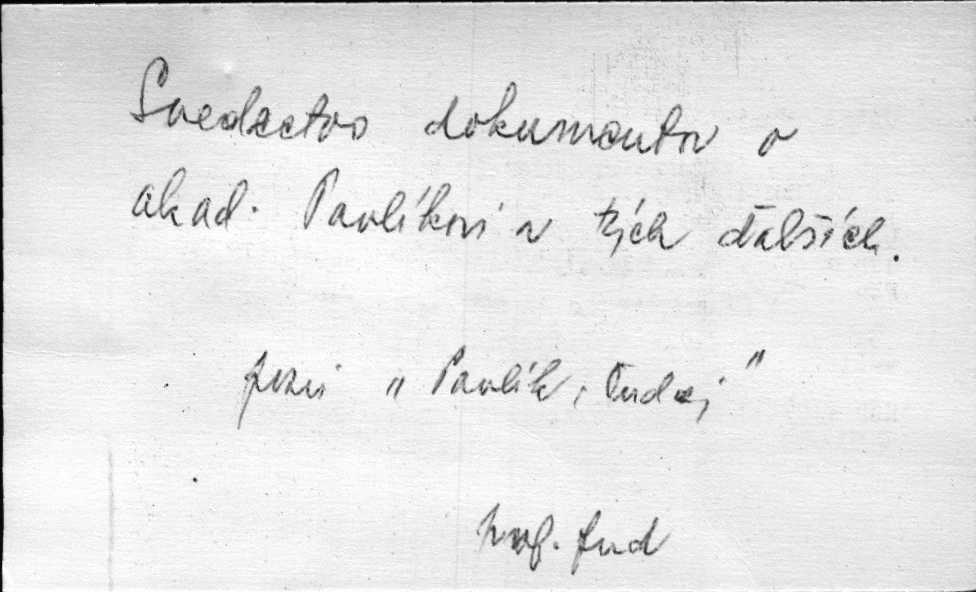 Svedectvo dokumentov o
akad. Pavlíkovi v tých ďalších.
pozri „Pavlík, Ondrej"